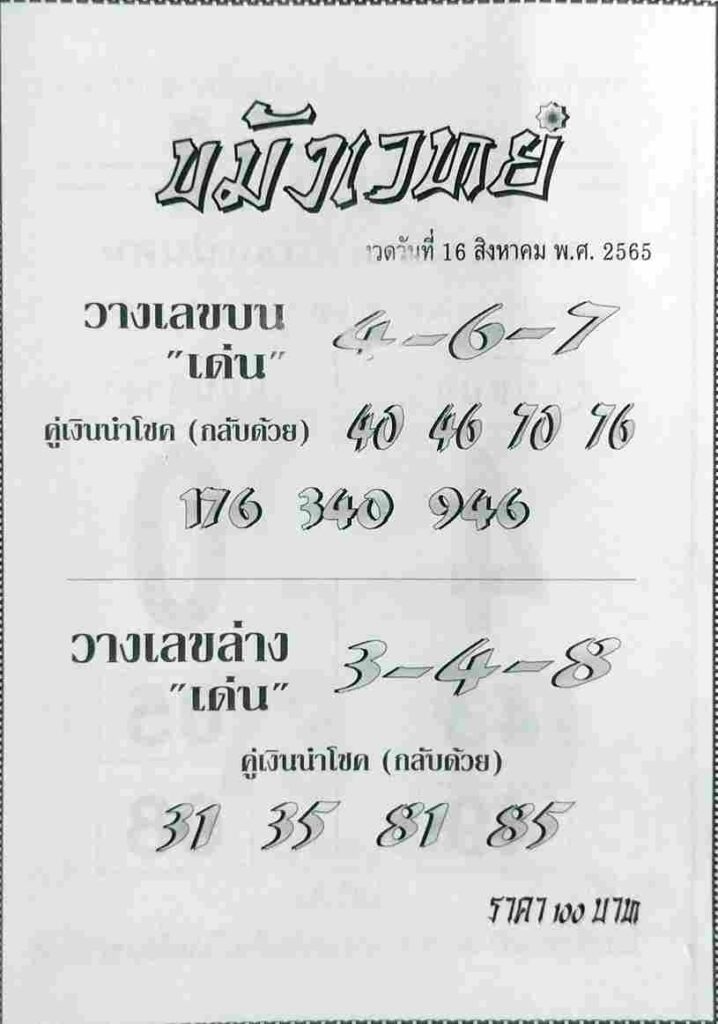 ขมังเวทย์
งวดวันที่ 16 สิงหาคม พ.ศ. 2565
วางเลขบน 4-6-7
"เด่น"
คู่เงินนำโชค (กลับด้วย) 40 46 70 76
176 340 946
วางเลขล่าง 3-4-8
"เด่น"
คู่เงินนำโชค (กลับด้วย)
31 35 81 85
ราคา 100 บาท